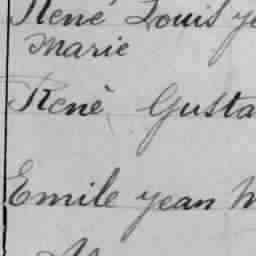 René Louis
Marie
René, Gusta
Emile yean